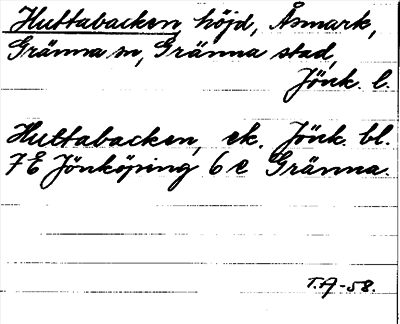 Huttabacken, höjd, Åsmark,
Gränna sn, Gränna stad,
Jönk. l.
Huttabacken, ek. Jönk. bl.
7E Jönköping 6 e Gränna.
T.A-58.